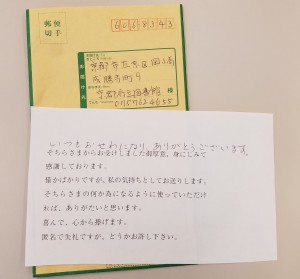 郵便
切手
6068343
京都市左京区岡崎
成勝寺町9
京都府立図書館
0757624655
いつもおせわになり、ありがとうございます。
そちらさまからお受けしました御厚意、身にしみて
感謝しております。
僅かばかりですが、私の気持ちとしてお送りします。
そちらさまの何か為になるように使っていただけ
れば、ありがたいと思います。
喜んで、心から捧げます。
匿名で失礼ですが、どうかお許し下さい。